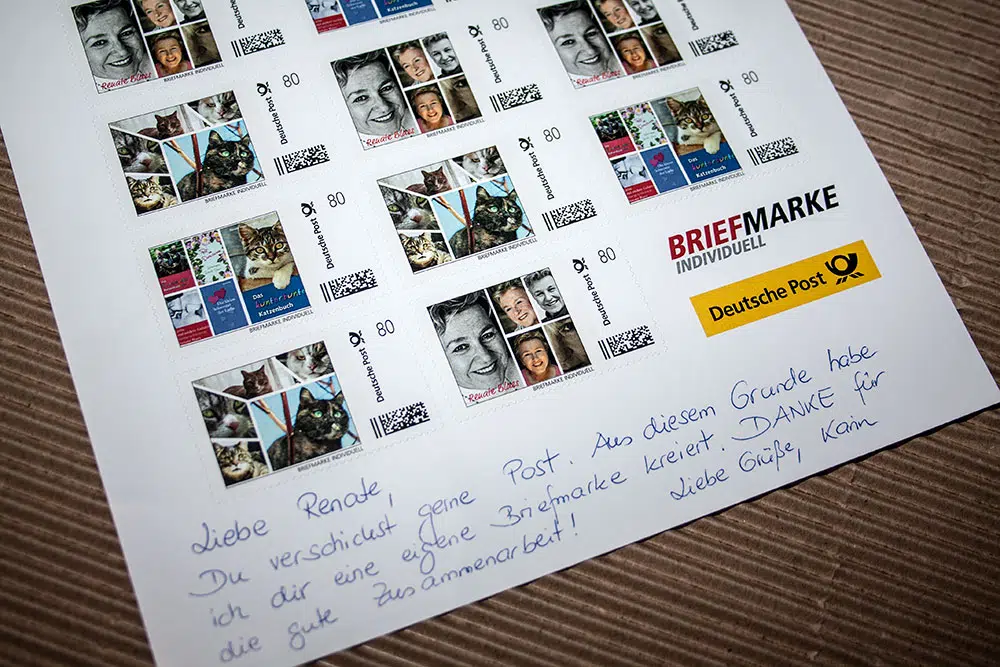 Renate Blaes
BRIEFMARKE INDIVIDUELL
Deutsche Post
BRIEFMARKE INDIVIDUELL
Renate Blaes
BRIEFMARKE INDIVIDUELL
Deutsche Post
80
BRIEFMARKE INDIVIDUELL
Deutsche Post
80
Renate Blaes
BRIEFMARKE INDIVIDUELL
Deutsche Post
80
BRIEFMARKE INDIVIDUELL
Deutsche Post
80
Katzenbuch
BRIEFMARKE INDIVIDUELL
Deutsche Post
80
Das
kunterbunte
Katzenbuch
BRIEFMARKE INDIVIDUELL
Deutsche Post
80
Renate Blaes
BRIEFMARKE INDIVIDUELL
Deutsche Post
80
BRIEFMARKE INDIVIDUELL
Deutsche Post
80
BRIEFMARKE
INDIVIDUELL
Deutsche Post
Liebe Renate,
Du verschickst gerne Post. Aus diesem Grunde habe
ich dir eine eigene Briefmarke kreiert. DANKE für
die gute Zusammenarbeit! Liebe Grüße, Karin